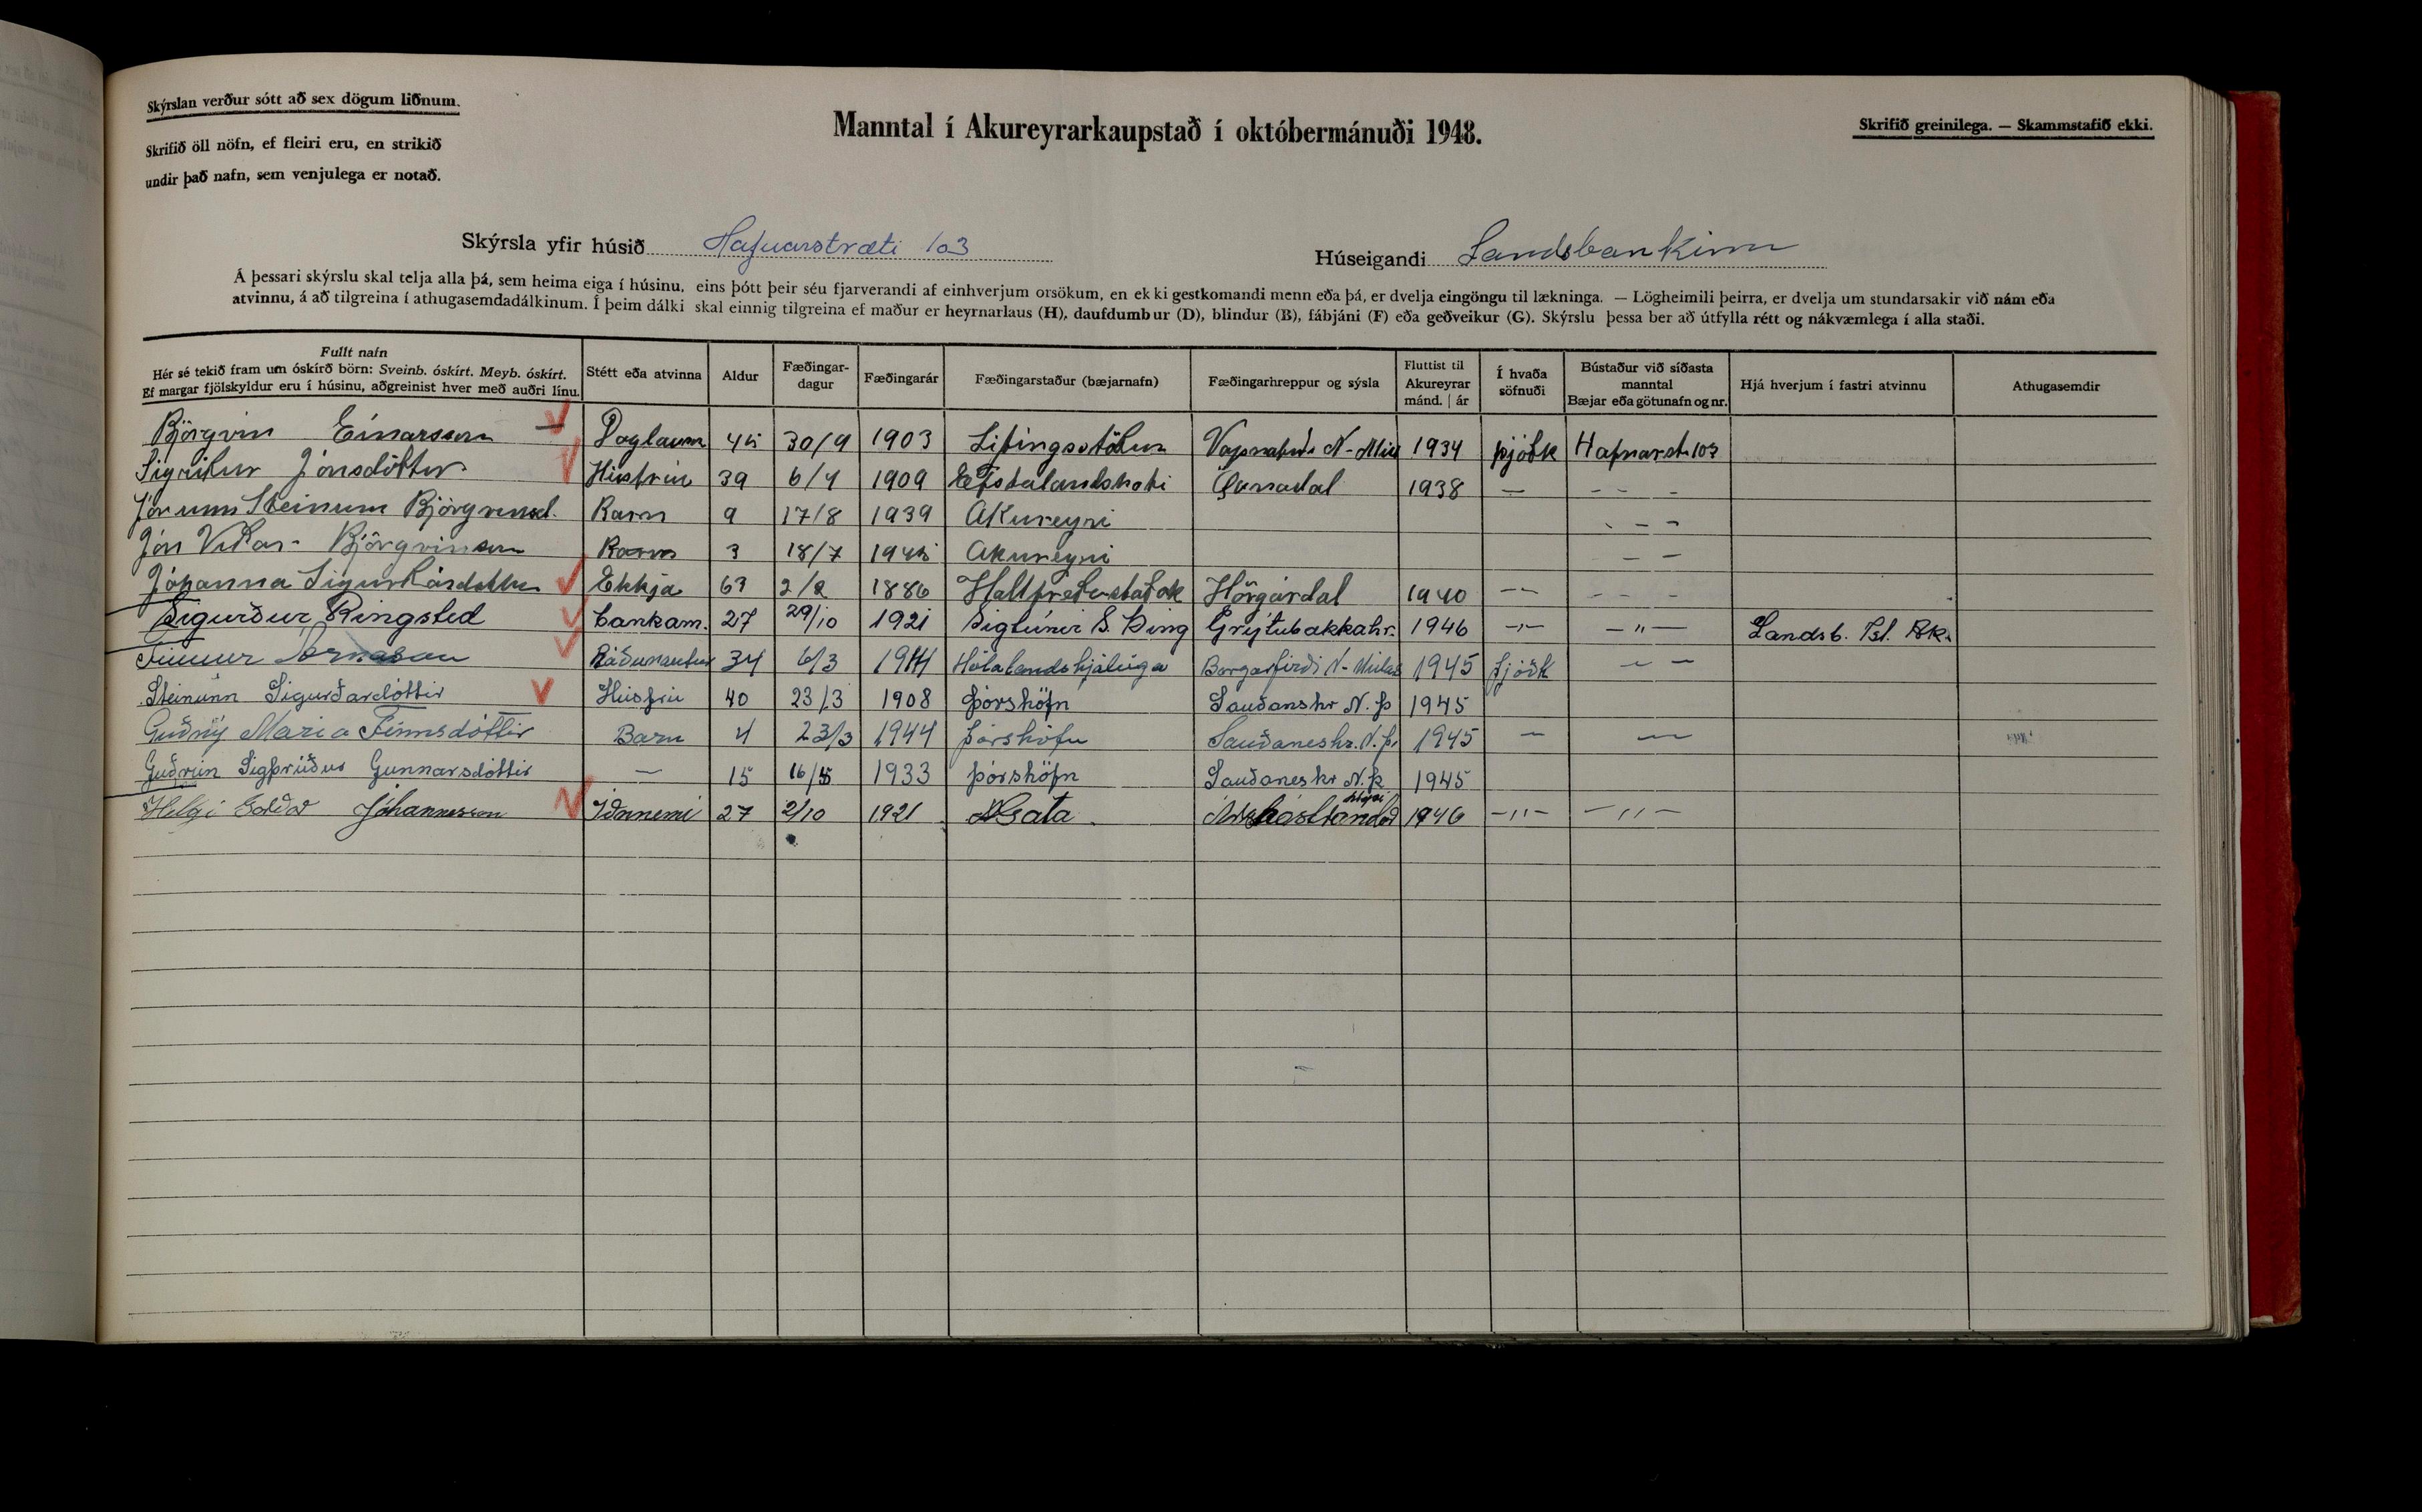 Skýrslan verður sótt að sex dögum liðnum.
Skrifið öll nöfn, ef fleiri eru, en strikið
undir það nafn, sem venjulega er notað.
Manntal í Akureyrarkaupstað í októbermánuði 1948.
Skrifið greinilega. — Skammstafið ekki.
Skýrsla yfir húsið Hafnarstræti 103
Húseigandi Landsbankinn
Á þessari skýrslu skal telja alla þá, sem heima eiga í húsinu, eins þótt þeir séu fjarverandi af einhverjum orsökum, en ekki gestkomandi menn eða þá, er dvelja eingöngu til lækninga. — Lögheimili þeirra, er dvelja um stundarsakir við nám eða
atvinnu, á að tilgreina í athugasemdadálkinum. Í þeim dálki skal einnig tilgreina ef maður er heyrnarlaus (H), daufdumbur (D), blindur (B), fábjáni (F) eða geðveikur (G). Skýrslu þessa ber að útfylla rétt og nákvæmlega í alla staði.
Fullt nafn
Hér sé tekið fram um óskírð börn: Sveinb. óskírt. Meyb. óskírt.
Ef margar fjölskyldur eru í húsinu, aðgreinist hver með auðri línu.
Stétt eða atvinna
Aldur
Fæðingar-
dagur
Fæðingarár
Fæðingarstaður (bæjarnafn)
Fæðingarhreppur og sýsla
Fluttist til
Akureyrar
mánd. | ár
Í hvaða
söfnuði
Bústaður við síðasta
manntal
Bæjar eða götunafn og nr.
Hjá hverjum í fastri atvinnu
Athugasemdir
Björgvin Einarsson Daglaunm 45 30/9 1903 Vapnafirði N-Múl 1934 þjóðk Hafnarst. 103
Sigríður Jónsdóttir Húsfrú 39 6/4 1909 Efstalandskoti Öxnadal 1938 — - - -
Jórunn Steinunn Björgvinsd. Barn 9 17/8 1939 Akureyri - - -
Jón Viðar Björgvinsson Barn 3 18/7 1945 Akureyri — —
Jóhanna Sigurðardóttir Ekkja 63 2/2 1886 Hörgárdal 1940 -- - - -
Sigurður Ringsted bankam. 27 29/10 1921 Sigtúnir S. Þing Grýtubakkahr. 1946 -"- -"- Landsb. Ísl. Ak.
Finnur Árnason Ráðunautur 34 6/3 1914 Borgarfirði N-Múlas 1945 þjóðk — —
Steinunn Sigurðardóttir Húsfrú 40 23/3 1908 Þórshöfn Sauðanshr N. Þ 1945
Guðný Maria Finnsdóttir Barn 4 23/3 1944 Þórshöfn Sauðaneshr. N. Þ. 1945 — —
Guðrún Sigfríður Gunnarsdóttir — 15 16/5 1933 Þórshöfn Sauðaneshr N. Þ 1945
Helgi Jóhannesson Iðnnemi 27 2/10 1921 Gata 1946 -"- -"-